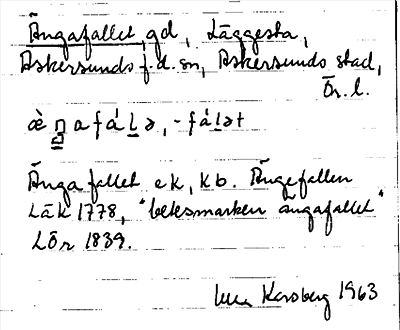 Ängafallet, gd, Läggesta,
Askersunds f.d. sn, Askersunds stad,
Ör. l.
æ̀ŋafáLə, -fáLət
Ängafallet ek, kb. Ängefallen
LÄK 1778, "betesmarken ängafallet"
LÖr 1839.
Karsberg 1963